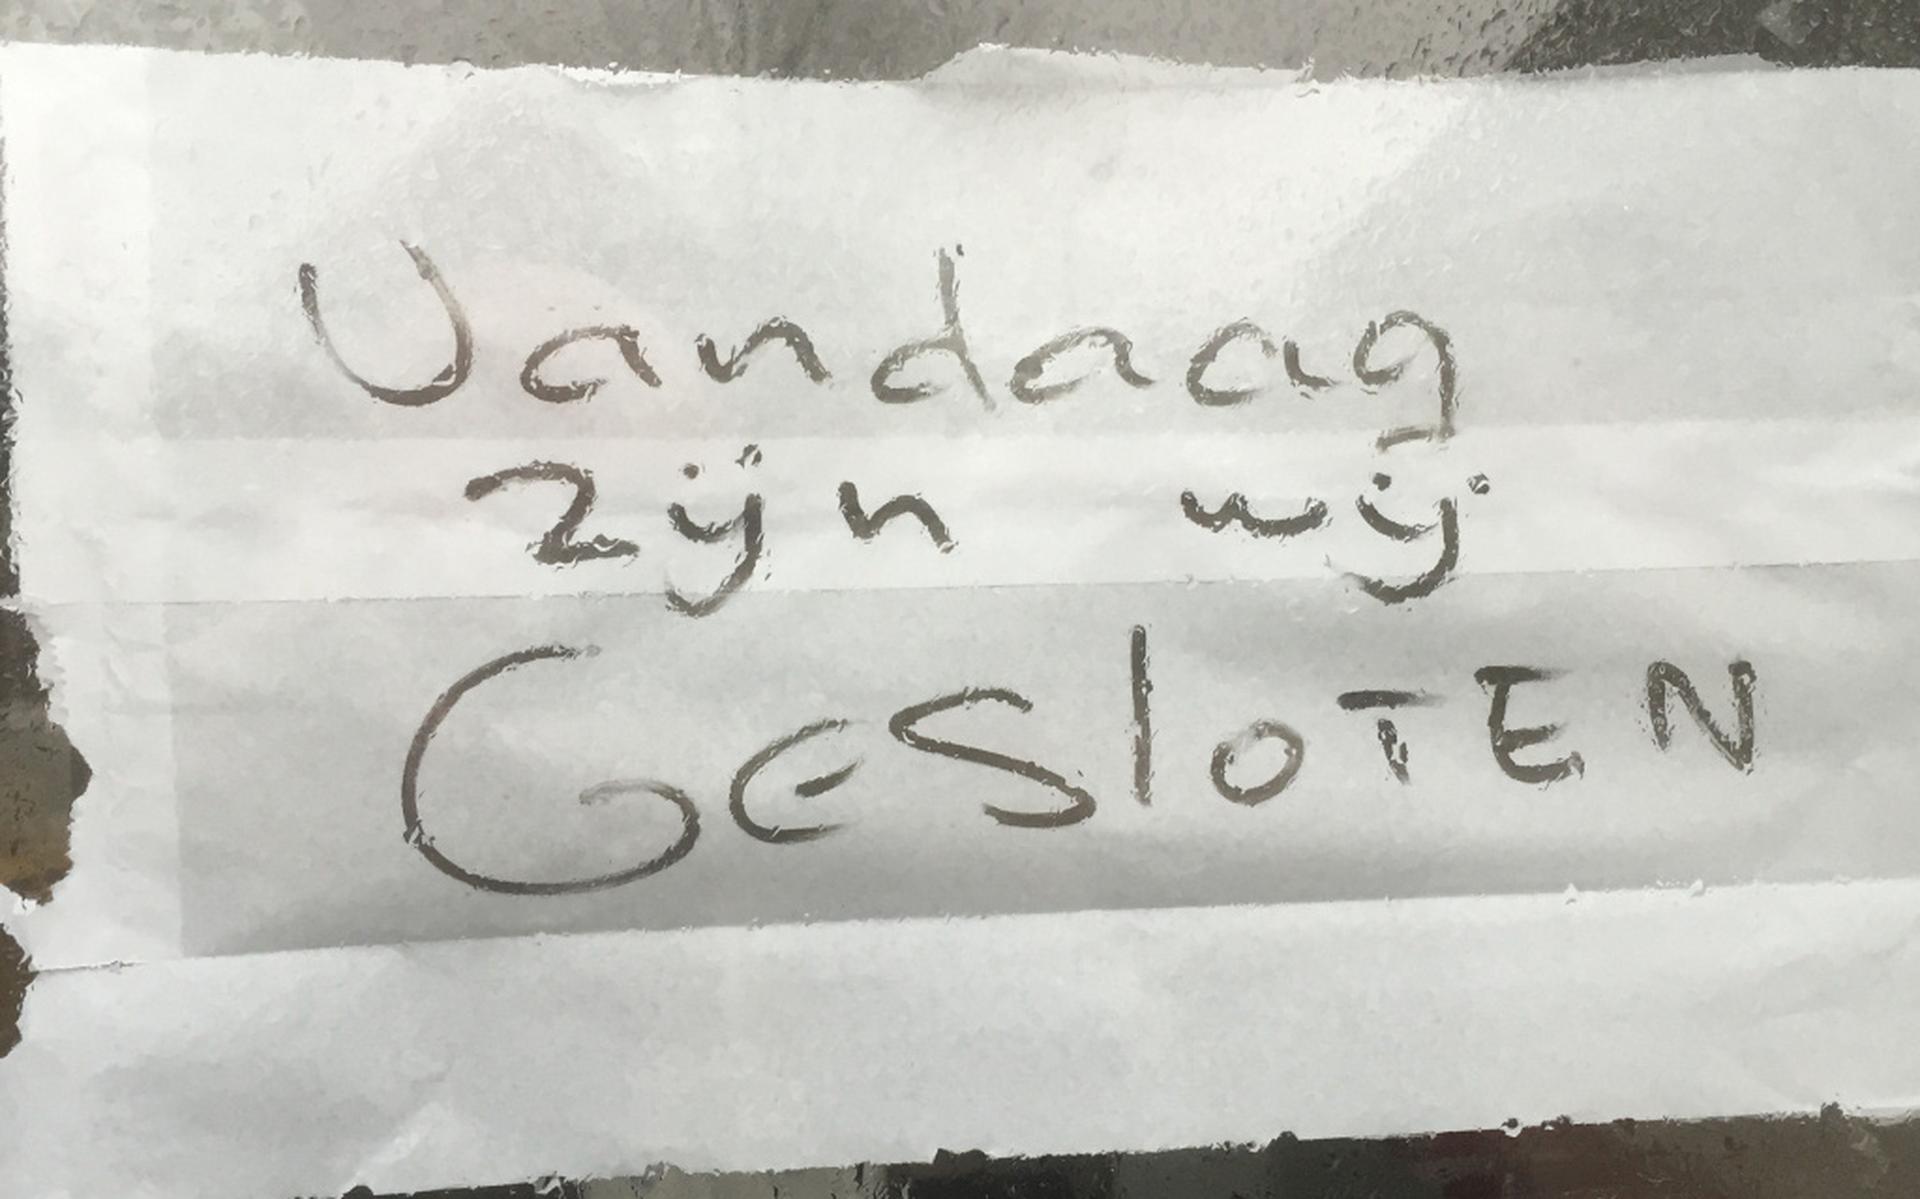 Vandaag
zijn wij
GeSloTEN